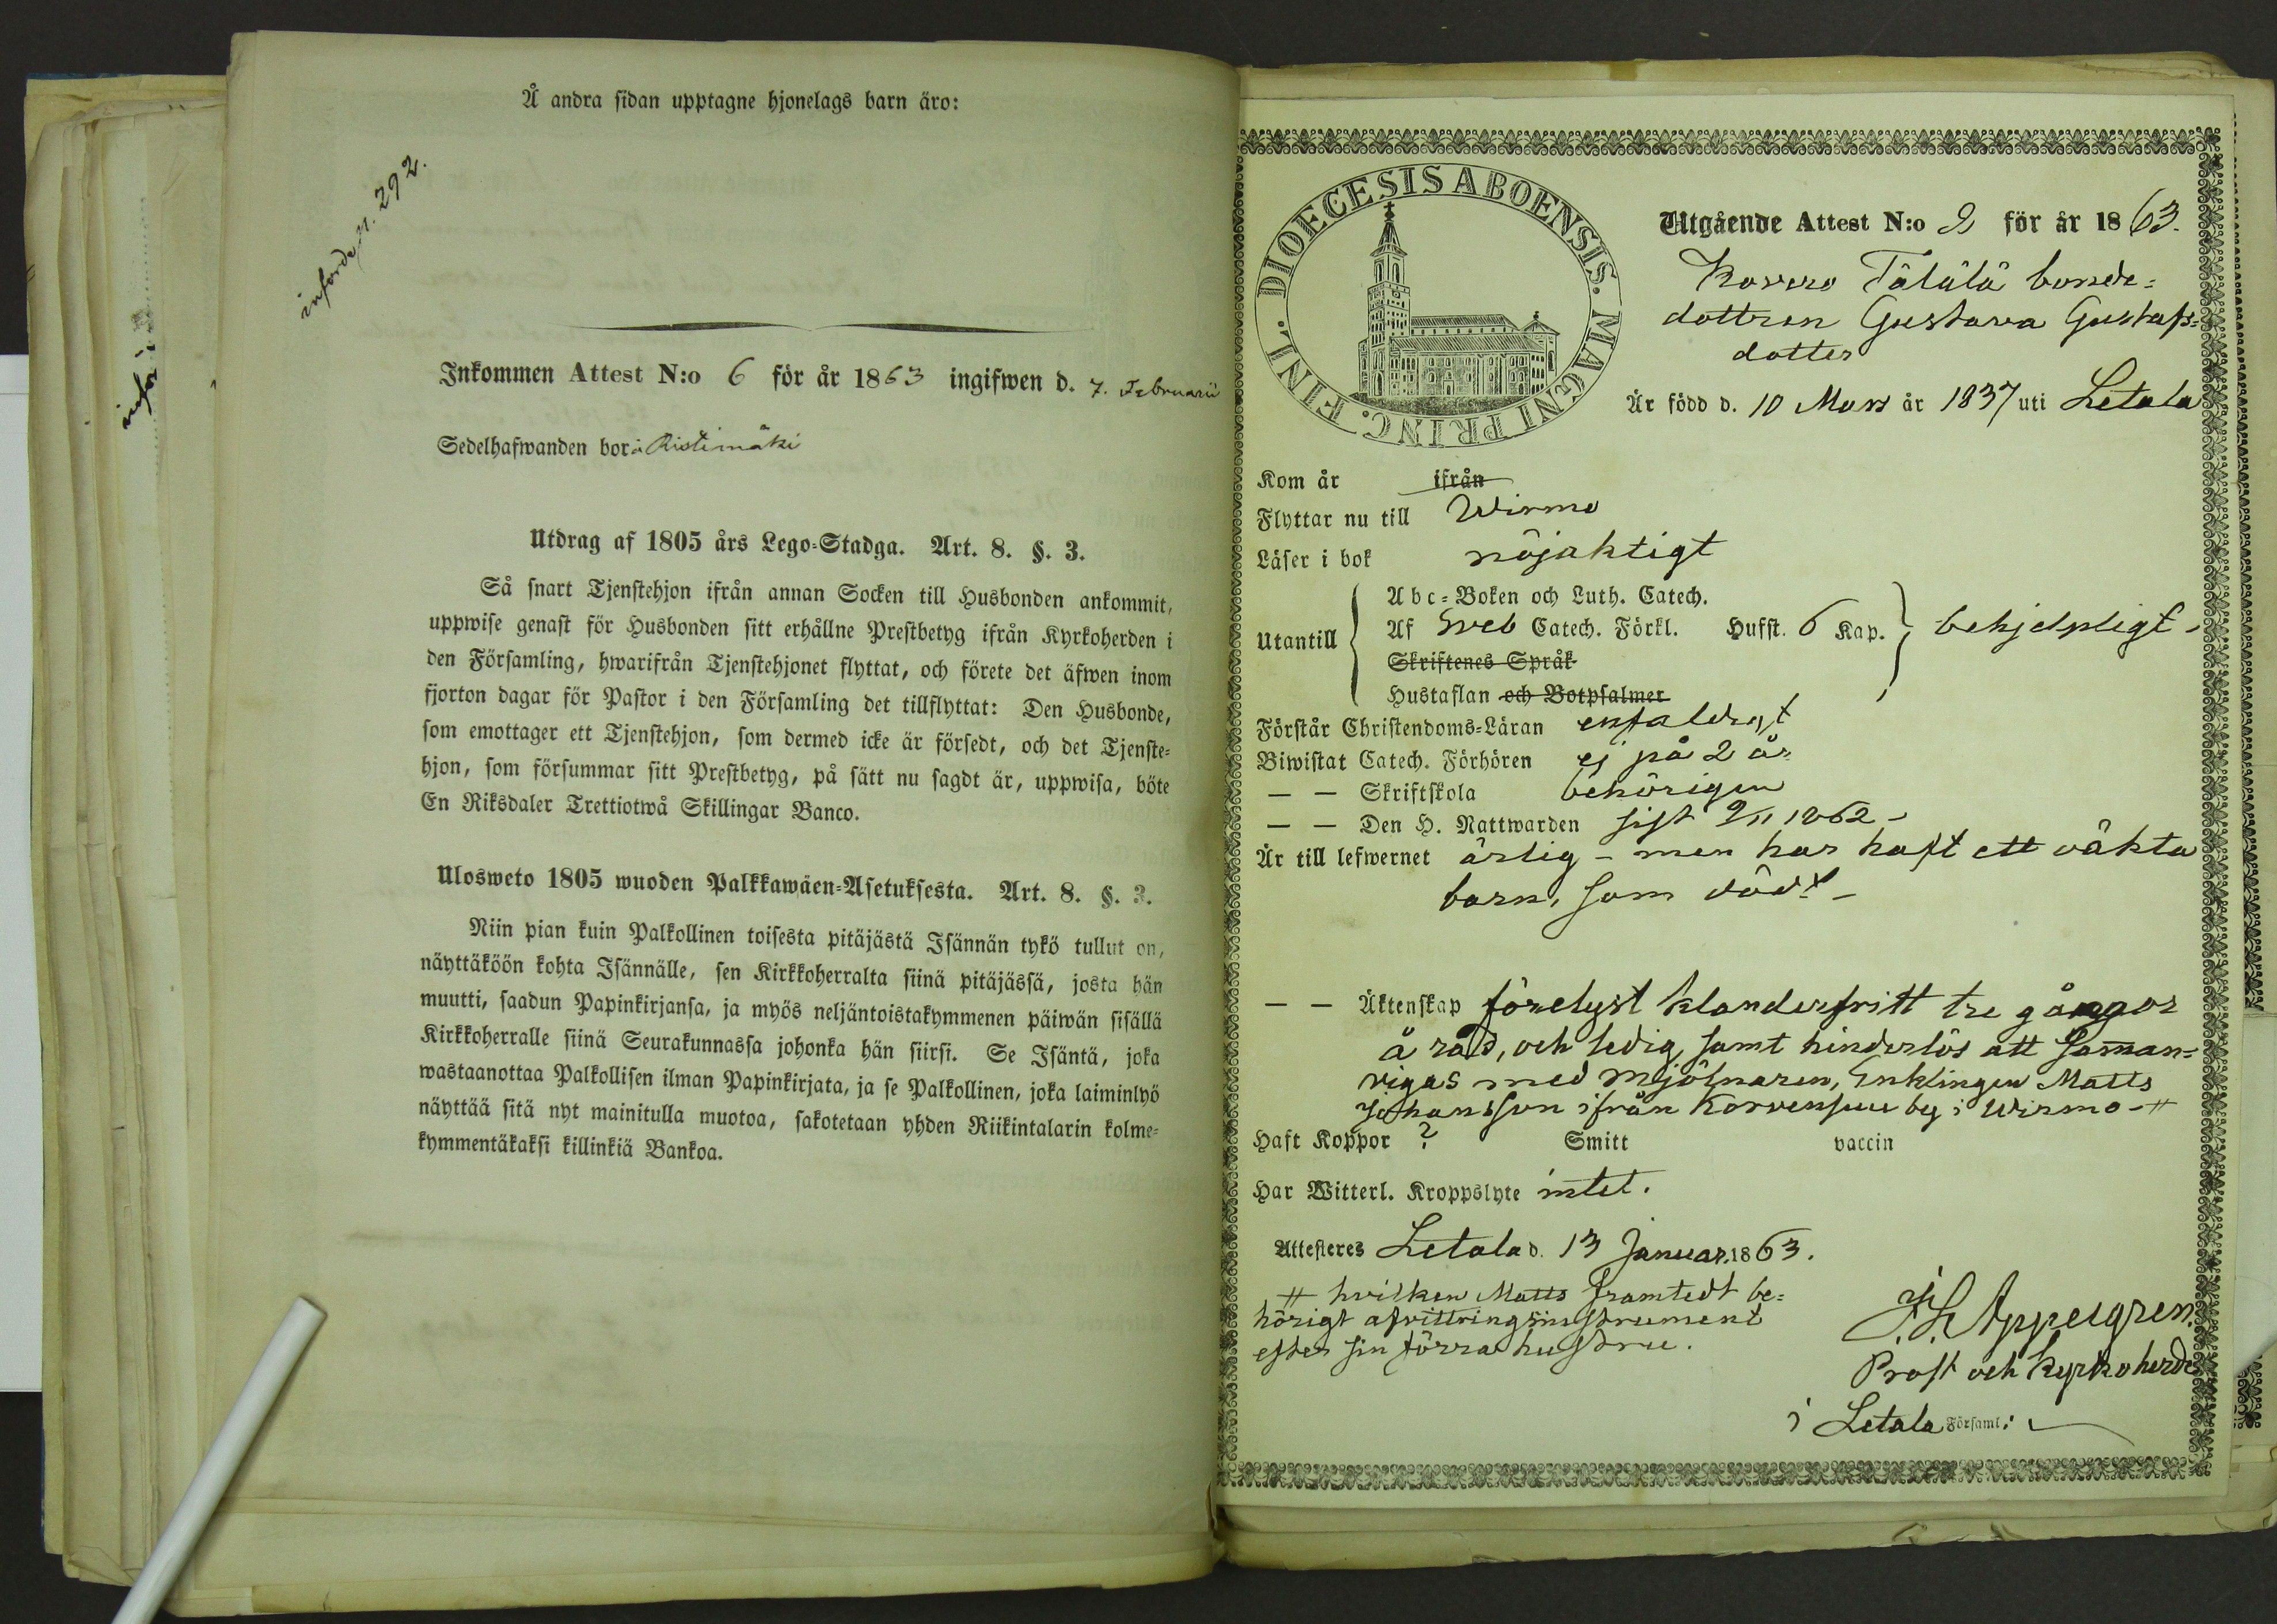 Å andra sidan upptagne hjonelags barn äro:
införde p. 292.
Inkommen Attest N:o 6 för år 1863 ingifwen d. 7. Februarii
Sedelhafwanden bor i Ristimäki
Utdrag af 1805 års Lego-Stadga. Art. 8. §. 3.
Så snart Tjenstehjon ifrån annan Socken till Husbonden ankommit,
uppwise genast för Husbonden sitt erhållne Prestbetyg ifrån Kyrkoherden i
den Församling, hwarifrån Tjenstehjonet flyttat, och förete det äfwen inom
fjorton dagar för Pastor i den Församling det tillflyttat: Den Husbonde,
som emottager ett Tjenstehjon, som dermed icke är försedt, och det Tjenste-
hjon, som försummar sitt Prestbetyg, på sätt nu sagdt är, uppwisa, böte
En Riksdaler Trettiotwå Skillingar Banco.
Ulosweto 1805 wuoden Palkkawäen-Asetuksesta. Art. 8. §. 3.
Niin pian kuin Palkollinen toisesta pitäjästä Isännän tykö tullut on,
näyttäköön kohta Isännälle, sen Kirkkoherralta siinä pitäjässä, josta hän
muutti, saadun Papinkirjansa, ja myös neljäntoistakymmenen päiwän sisällä
Kirkkoherralle siinä Seurakunnassa johonka hän siirsi. Se Isäntä, joka
wastaanottaa Palkollisen ilman Papinkirjata, ja se Palkollinen, joka laiminlyö
näyttää sitä nyt mainitulla muotoa, sakotetaan yhden Riikintalarin kolme-
kymmentäkaksi killinkiä Bankoa.
FINL. DIOECESIS ABOENSIS. MAGNI PRINC.
Utgående Attest N:o 2 för år 1863.
Kovero Tälälä bonde-
dottren Gustava Gustafs-
dotter
Är född d. 10 Mars år 1837 uti Letala
Kom år ifrån
Flyttar nu till Wirmo
Läser i bok nöjaktigt
Utantill
Abc-Boken och Luth. Catech.
Af Sveb Catech. Förkl. Hufst. 6 Kap. behjelpligt -
Skriftenes Språk
Hustaflan och Botpsalmer
Förstår Christendoms-Läran enfaldigt
Biwistat Catech. Förhören ej på 2 år
— — Skriftskola behörigen
— — Den H. Nattwarden sist 2/11 1862 -
Är till lefwernet ärlig - men har haft ett oäkta
barn, som dödt -
— — Äktenskap förelyst klanderfritt tre gångor
å rad, och ledig, samt hinderlös att samman-
vigas med mjölnaren, Enklingen Matts
Johansson ifrån Korvensuu by i Wirmo - #
Haft Koppor ? Smitt vaccin
Har Witterl. Kroppslyte intet.
Attesteres Letala d. 13 Januar. 1863.
# hvilken Matts framtedt be-
hörigt afvittringsinstrument
efter sin förra hustru.
Appelgren.
Prost och Kyrkoherde
i Letala Församl: